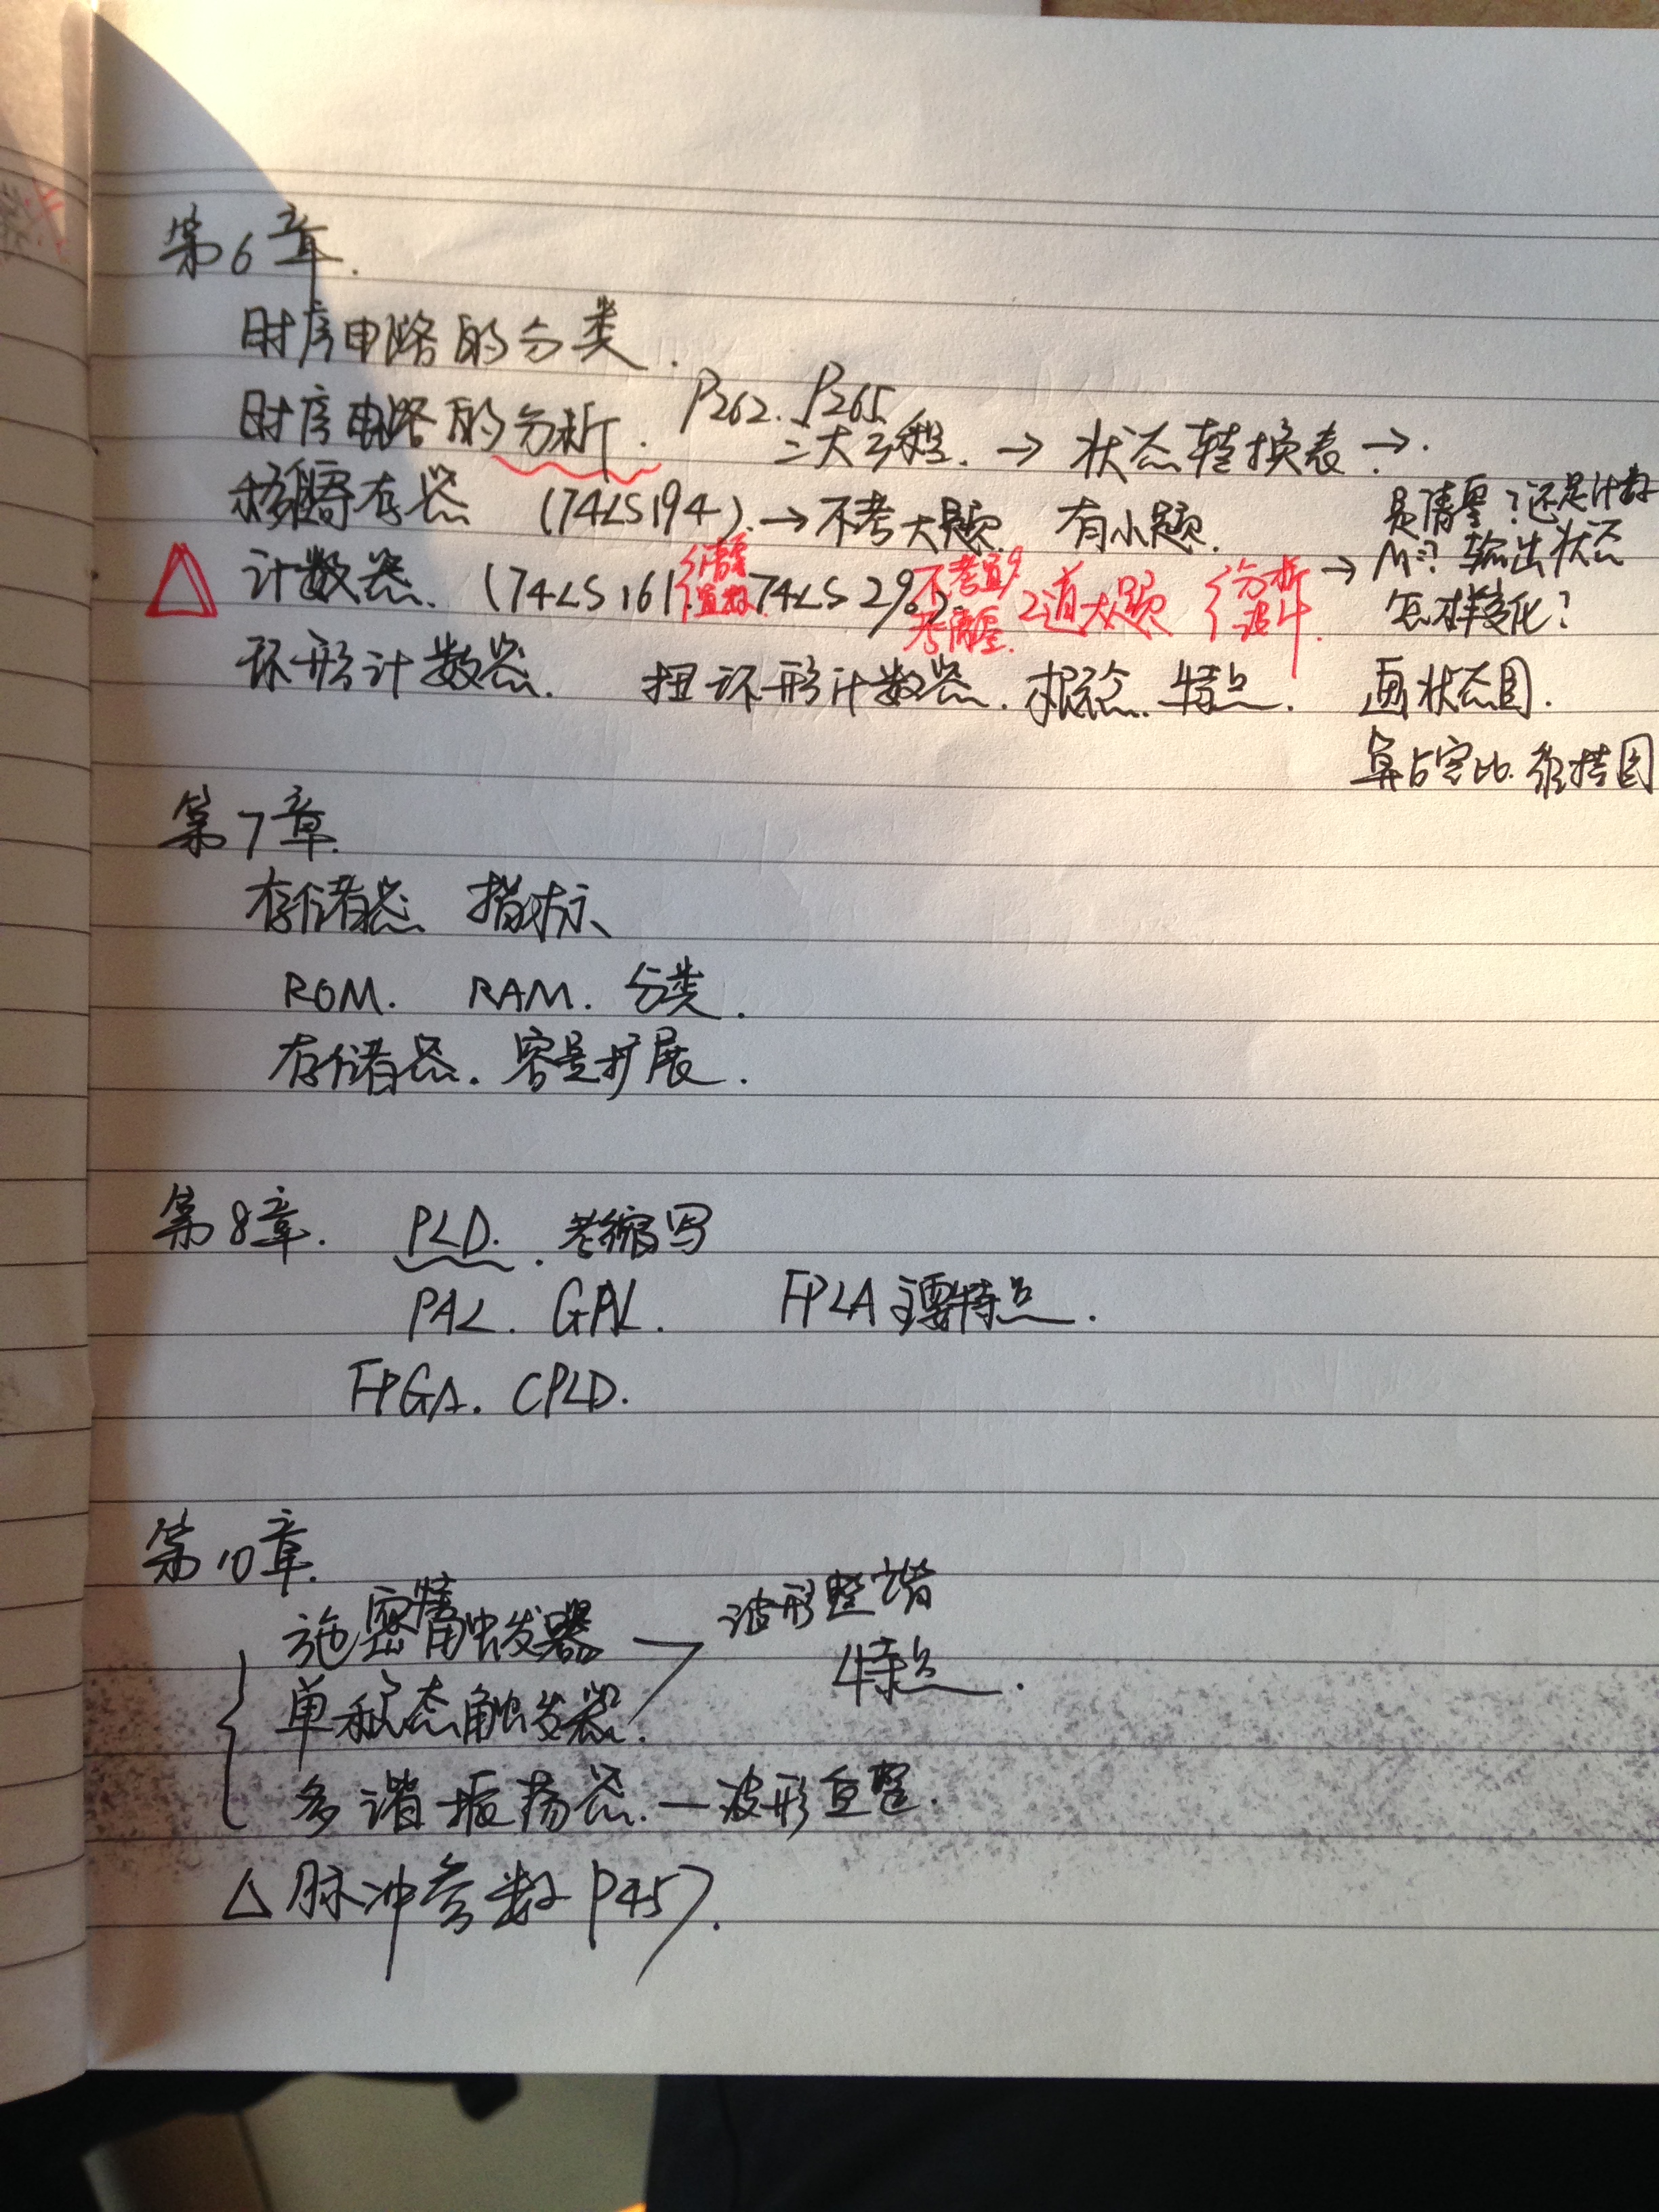 第6章.
时序电路的分类.
时序电路的分析. P262. P265
三大方程. → 状态转换表 →.
移位寄存器 (74LS194). → 不考大题 有小题.
是清零?还是计数
△ 计数器. (74LS161. {清零 置数 74LS290). 不考置9 考清零. 2道大题 {分析 设计.
→ M=? 输出状态
怎样变化?
环形计数器. 扭环形计数器. 概念. 特点.
画状态图.
算占空比.
第7章.
存储器 指标、
ROM. RAM. 分类.
存储器. 容量扩展.
第8章. PLD. 考缩写
PAL. GAL. FPLA 主要特点.
FPGA. CPLD.
第10章.
施密特触发器 波形整
单稳态触发器. 特点.
多谐振荡器. — 波形
△ 脉冲参数 P457.